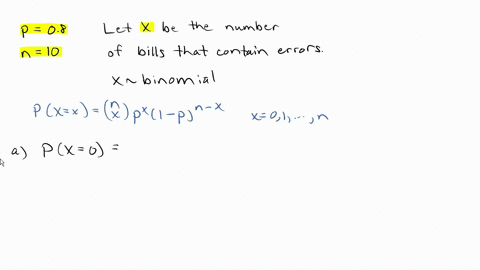 p = 0.8 Let X be the number
n = 10 of bills that contain errors.
X ~ binomial
P(X=x) = (n x) p^x (1-p)^{n-x} x=0,1,...,n
a) P(X=0) =